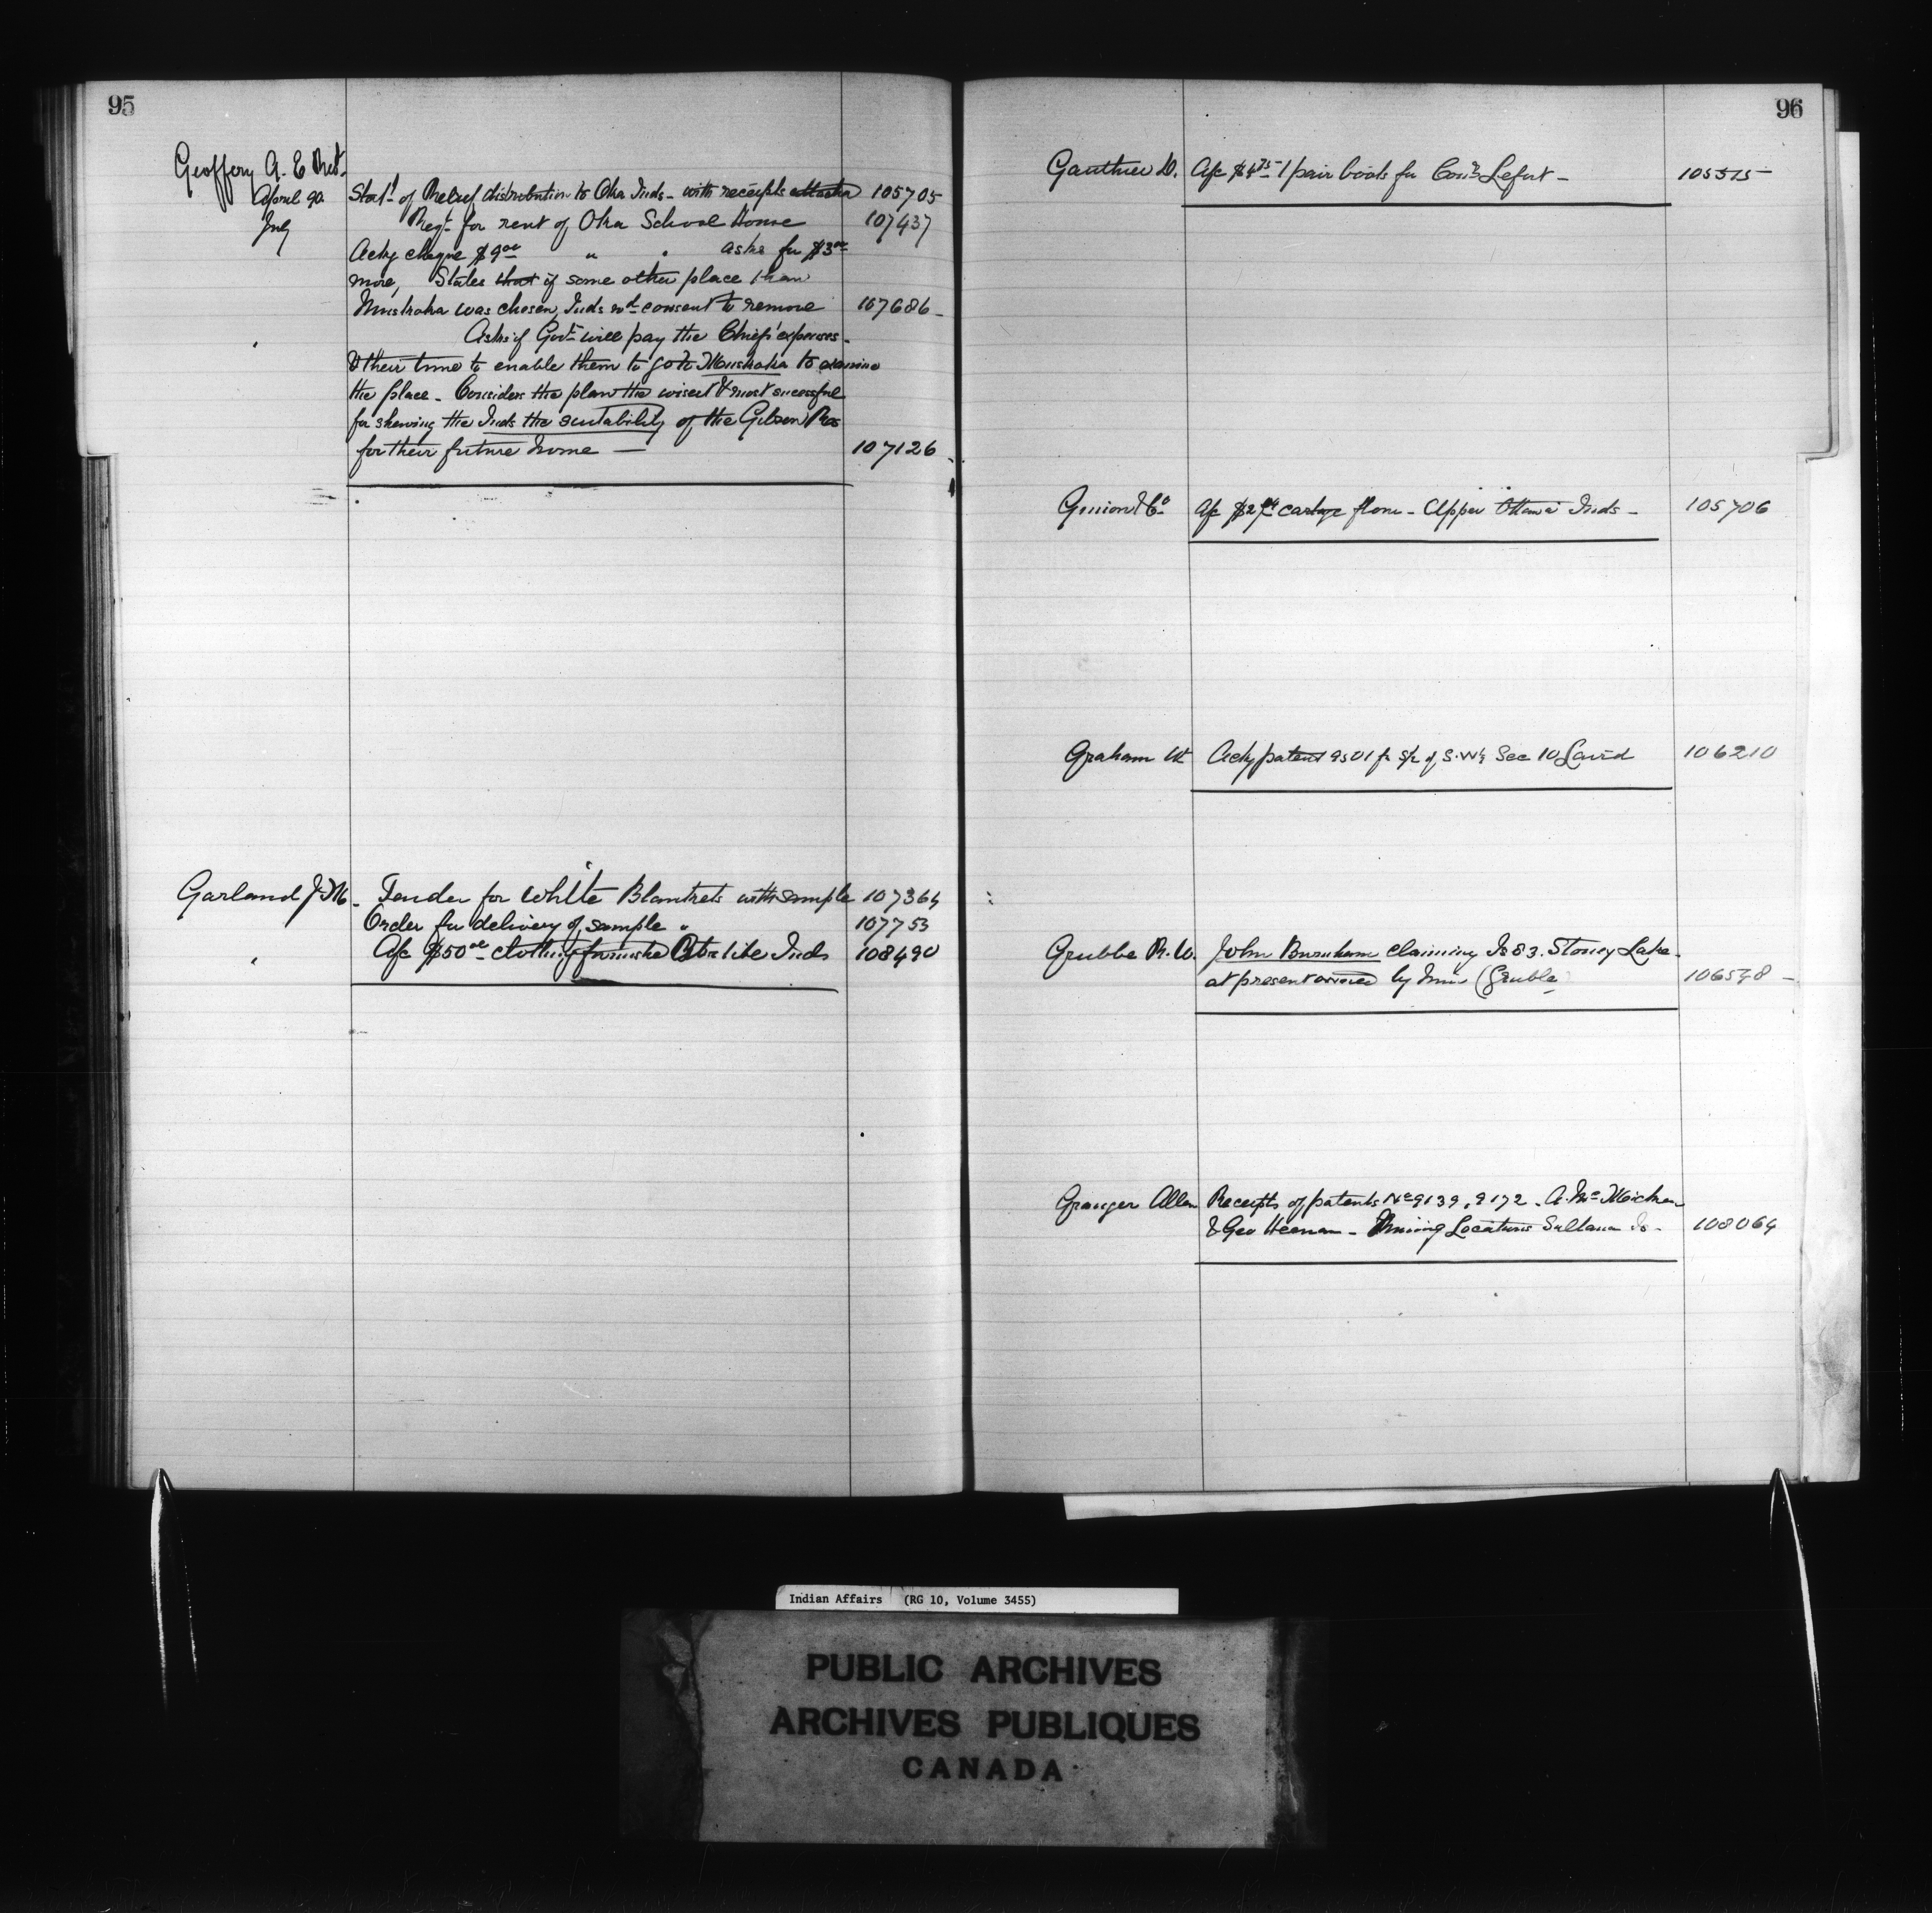 95
Geoffery A. E Revd.
April 90. Statt of Relief distribution to Oka Inds - with receipts attached 105705
July Reqt for rent of Oka School House 107437
Ackg cheque $9 00 " " asks for $3 00
more, States that if some other place than
Muskoka was chosen, Inds wd consent to remove 107686
" Asks if Govt will pay the Chiefs' expenses
& their time to enable them to go to Muskoka to examine
the place - Considers the plan the wisest & most successful
for shewing the Inds the suitability of the Gibson Res
for their future home — 107126
Garland J. M. - Tender for white Blankets with sample 107364
Order for delivery of sample " 107753
" A/c $50 00 clothing furnished Inds 108490
96
Gauthier D. A/c $4 75 1 pair boots for Lefort - 105375
Guion & Co A/c $2 cartage flour - Upper Ottawa Inds - 105706
Graham W Ackg patent 9501 fr S½ of S.W¼ Sec 10 Laird 106210
Grubbe R. W. John Burnham claiming Is 83. Stoney Lake -
at present owned by him (Grubbe 106548
Granger Allen Receipts of patents No 9139, 9172 - A. Mc
& Geo Heenan - Mining Locations Sultana Is - 108064
Indian Affairs (RG 10, Volume 3455)
PUBLIC ARCHIVES
ARCHIVES PUBLIQUES
CANADA